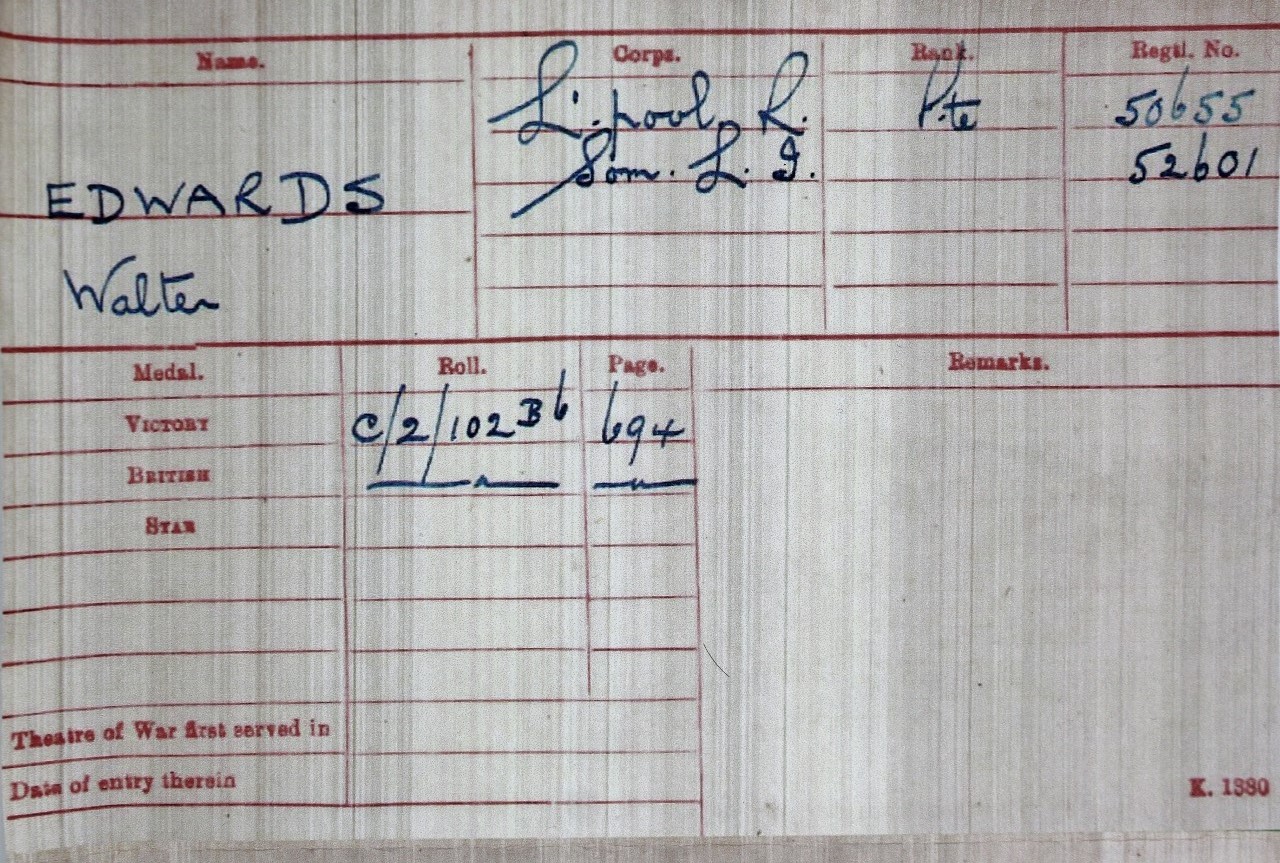 Name. Corps. Rank. Regtl. No.
L'pool R. Pte 50655
Som. L. I. 52601
EDWARDS
Walter
Medal. Roll. Page. Remarks.
VICTORY C/2/102 B6 694
BRITISH — " — — " —
STAR
Theatre of War first served in
Date of entry therein
K. 1380